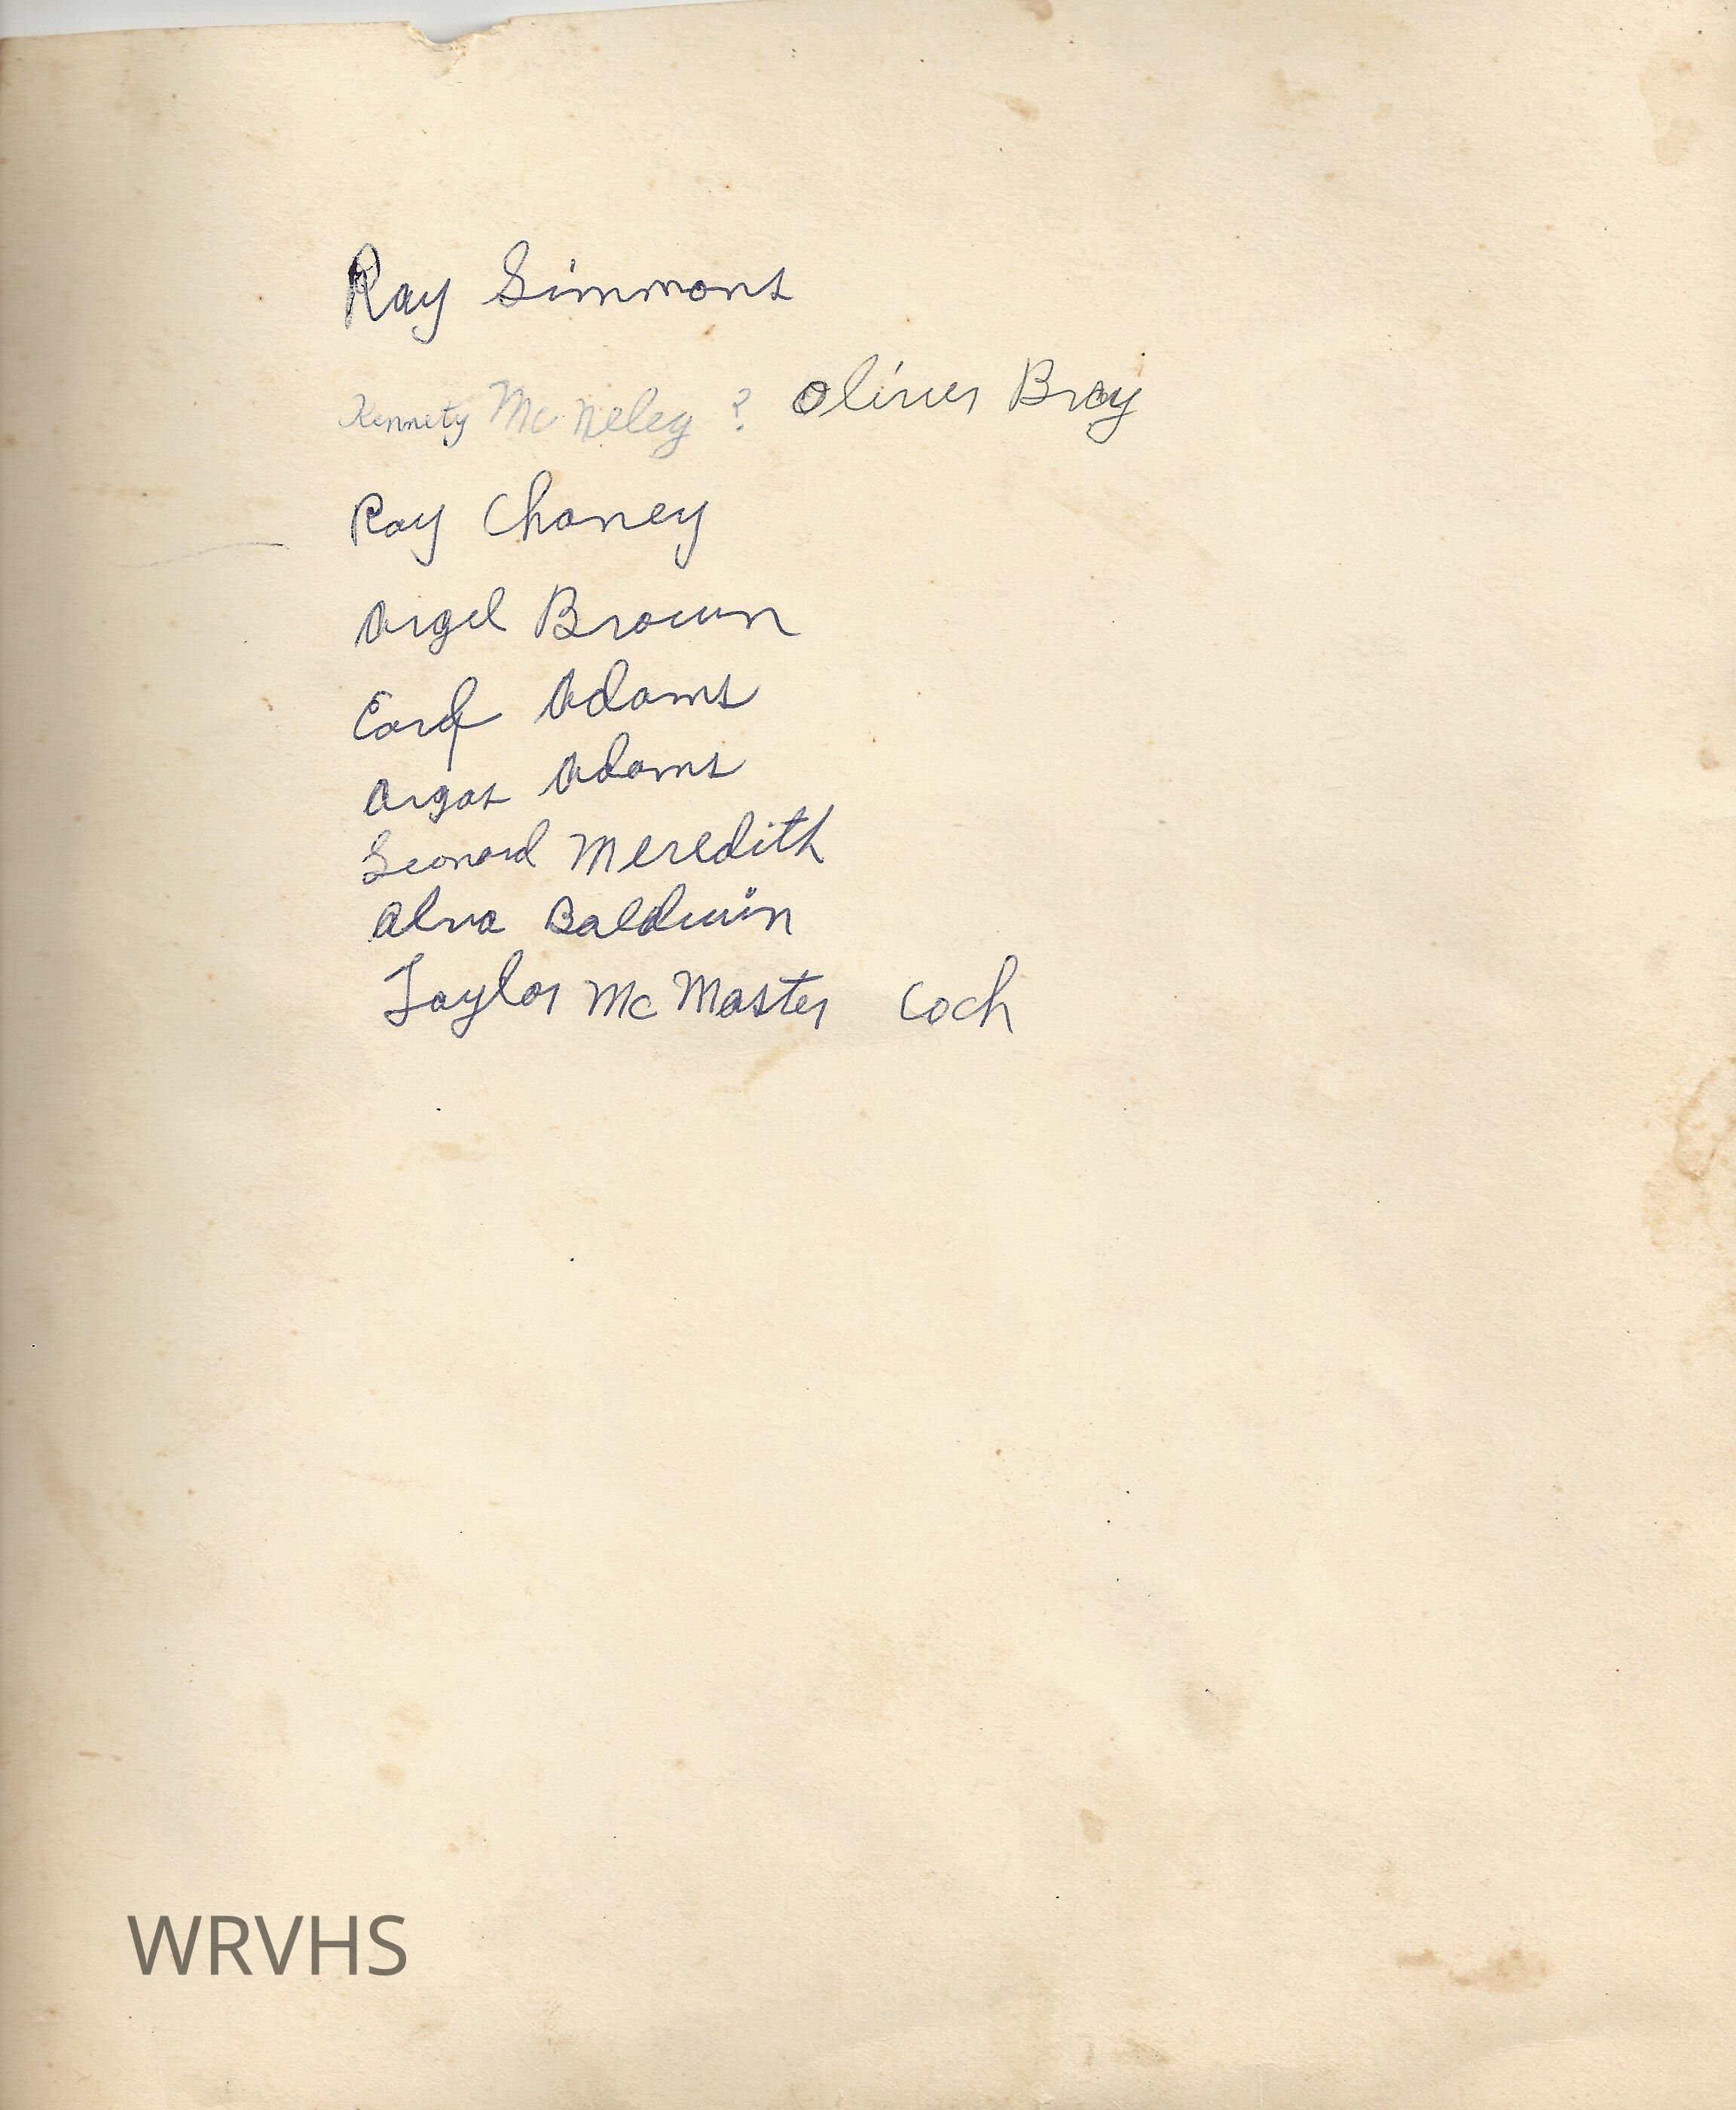 Ray Simmons
Kennety Mc Neleg ? Oliver Bray
Ray Chaney
Argel Brown
Earl Adams
Argas Adams
Leonard Meredith
Alva Baldwin
Taylor Mc Master Coch
WRVHS